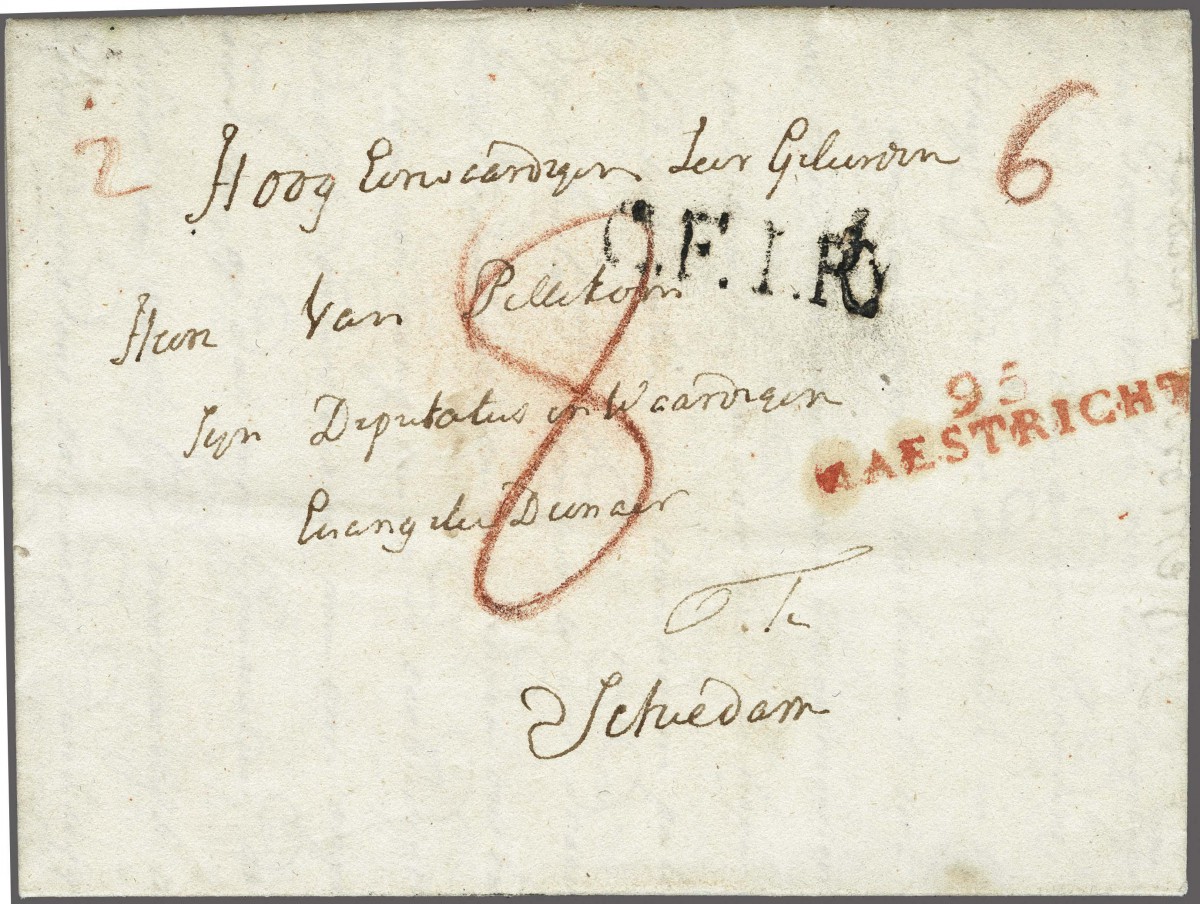 2
6
Hoog Eerwaardigen Seer Geleerden
C.F.I.R
8
Heere Van Pellekom
Syn Deputatus en Waardigen
95
MAESTRICHT
Euangelie Dienaer
Te
Schiedam